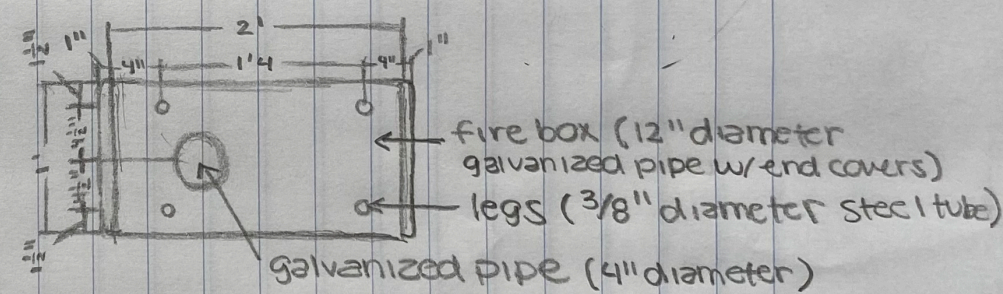 2'
1" 1"
4" 1'4 4"
1'
fire box (12" diameter
galvanized pipe w/ end covers)
legs (3/8" diameter steel tube)
galvanized pipe (4" diameter)